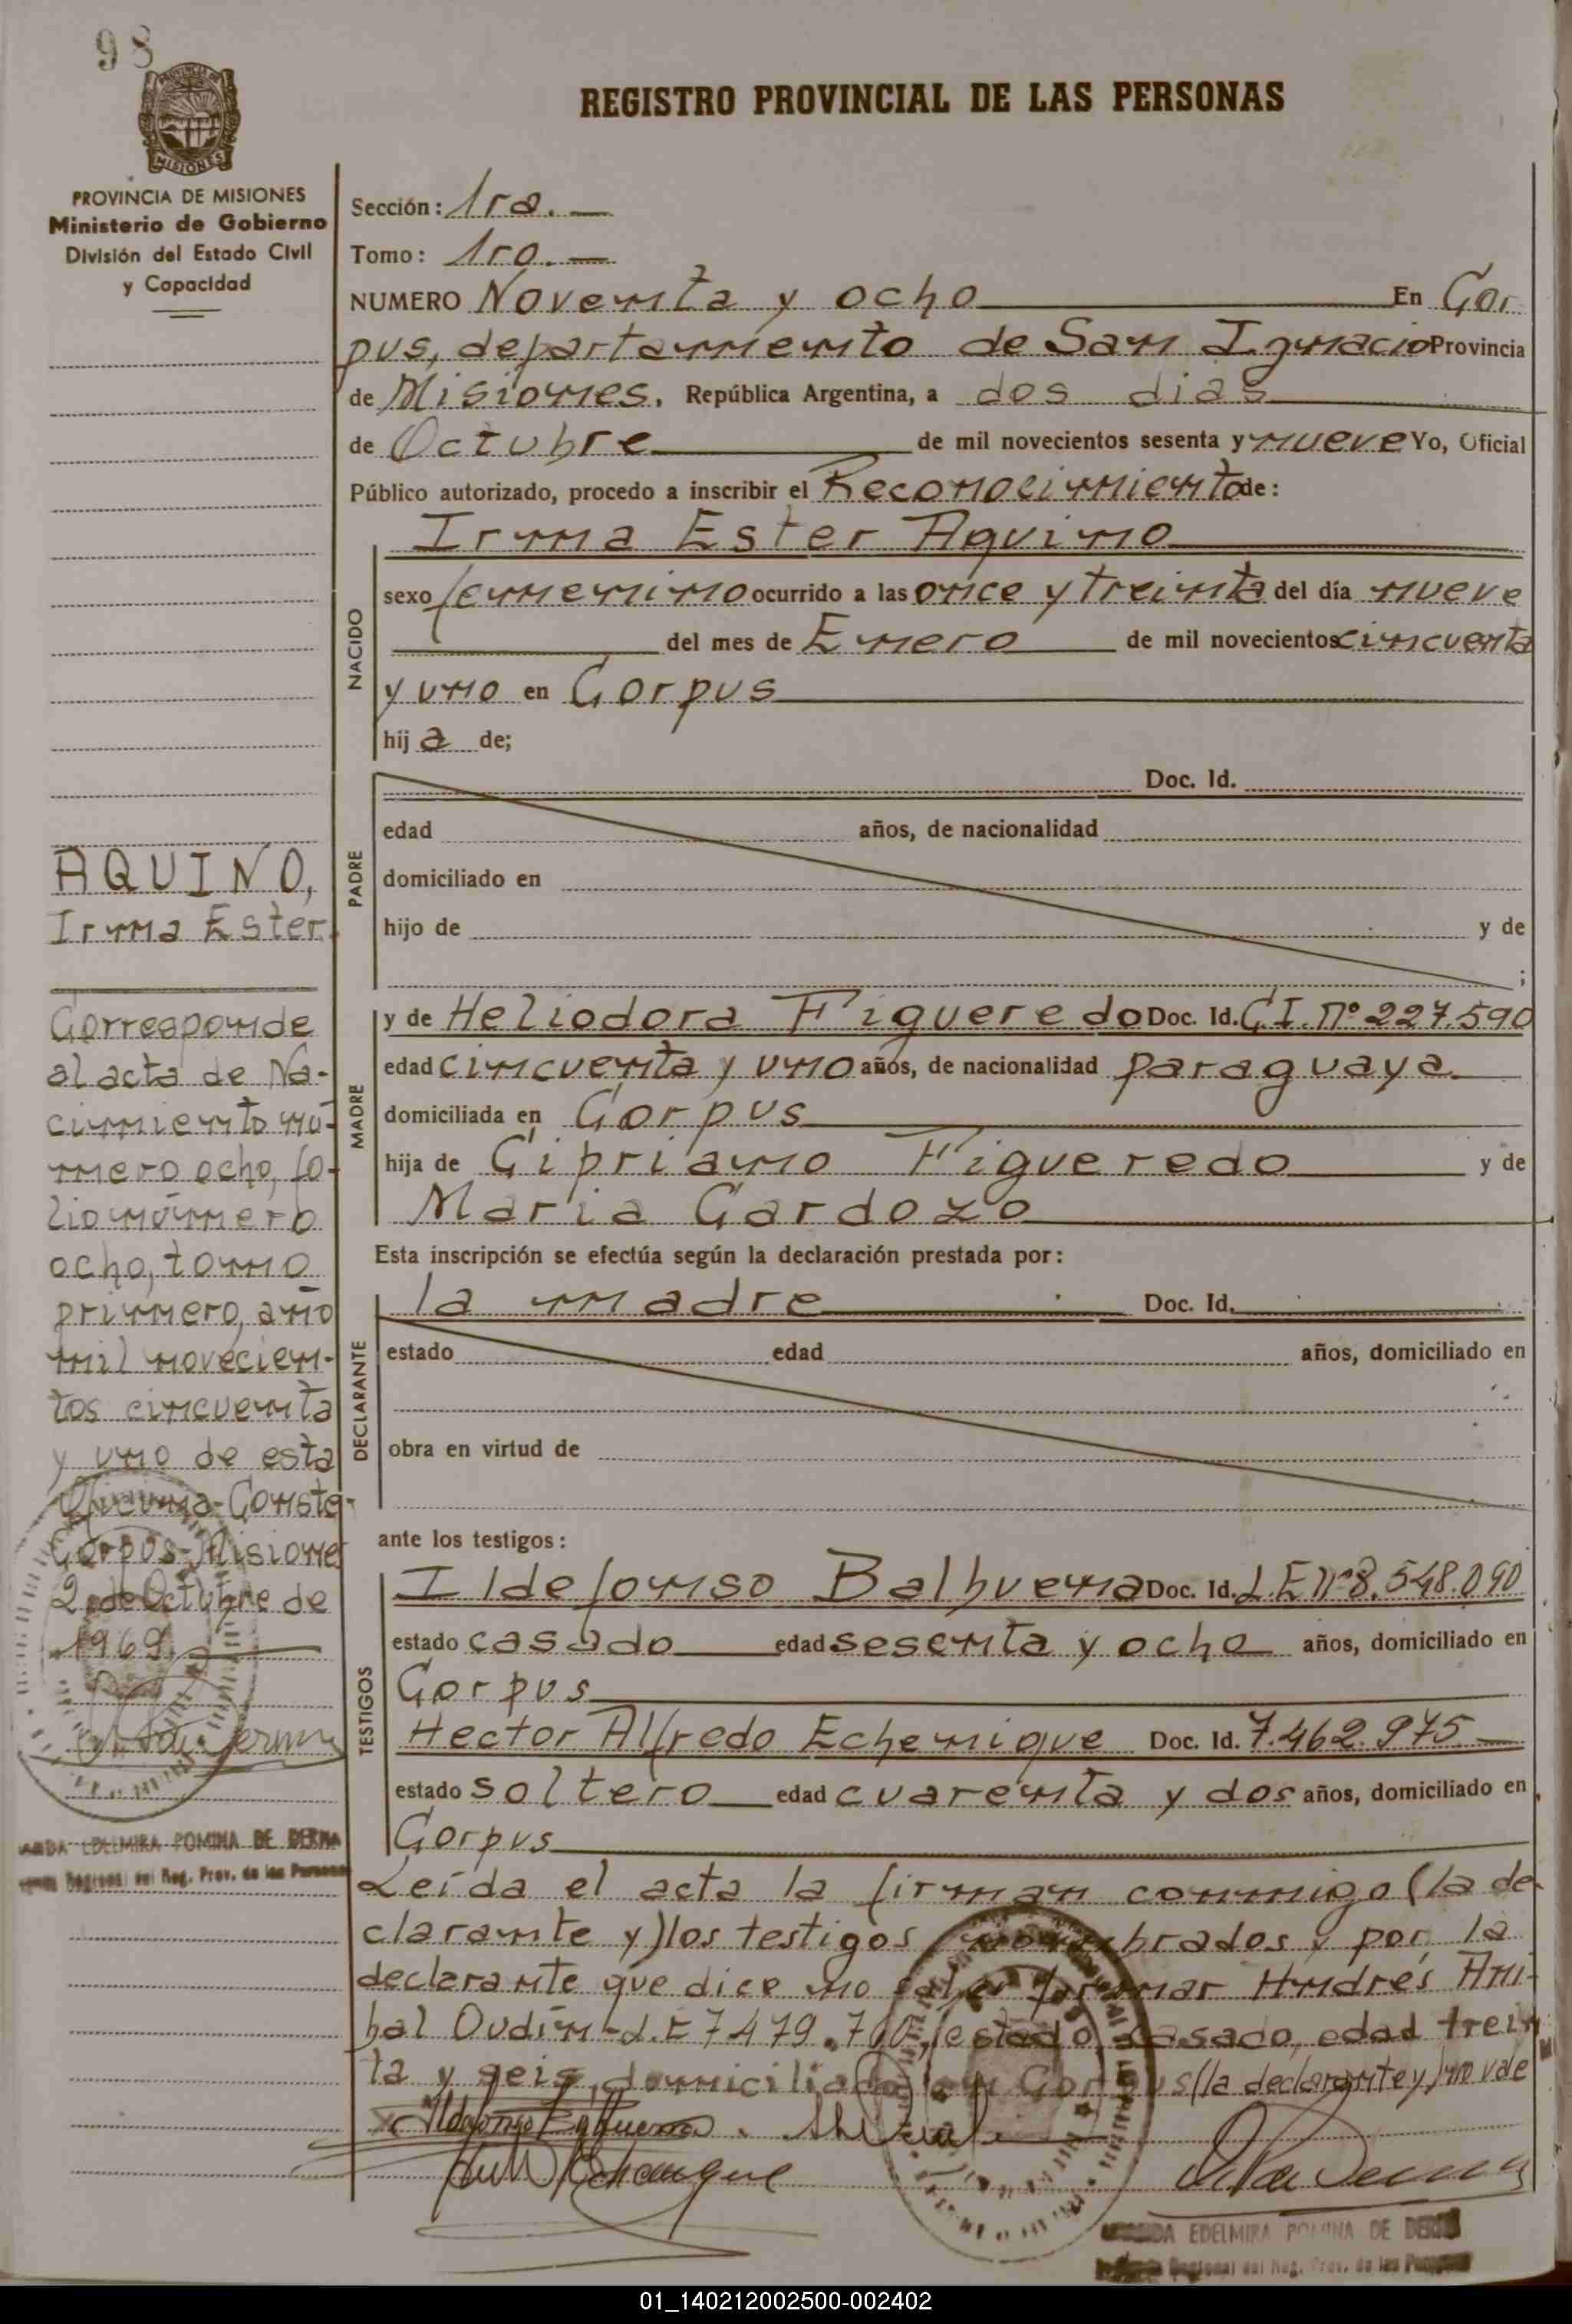 98
PROVINCIA DE MISIONES
Ministerio de Gobierno
División del Estado Civil
y Capacidad
REGISTRO PROVINCIAL DE LAS PERSONAS
Sección: 1ra.
Tomo: 1ro.
NUMERO Noventa y ocho En Cor
pus, departamento de San Ignacio Provincia
de Misiones, República Argentina, a dos dias
de Octubre de mil novecientos sesenta y nueve Yo, Oficial
Público autorizado, procedo a inscribir el Reconocimiento de:
NACIDO
Irma Ester Aquino
sexo femenino ocurrido a las once y treinta del día nueve
del mes de Enero de mil novecientos cincuenta
y uno en Corpus
hij a de;
PADRE
Doc. Id.
edad años, de nacionalidad
domiciliado en
hijo de y de
;
MADRE
y de Heliodora Figueredo Doc. Id. C.I. nº 227.590
edad cincuenta y uno años, de nacionalidad paraguaya
domiciliada en Corpus
hija de Cipriano Figueredo y de
Maria Cardozo
Esta inscripción se efectúa según la declaración prestada por:
DECLARANTE
la madre Doc. Id.
estado edad años, domiciliado en
obra en virtud de
ante los testigos:
TESTIGOS
Ildefonso Balbuena Doc. Id. L.E nº 8.548.090
estado casado edad sesenta y ocho años, domiciliado en
Corpus
Hector Alfredo Echenique Doc. Id. 7.462.975
estado soltero edad cuarenta y dos años, domiciliado en
Corpus
Leída el acta la firman conmigo (la de
clarante y) los testigos nombrados y por la
declarante que dice no saber firmar Andrés Aní-
bal Oudín-L.E 7479.760, estado casado, edad trein
ta y seis, domiciliado en Corpus (la declarante y) no vale
AQUINO,
Irma Ester.
Corresponde
al acta de Na-
cimiento nú-
mero ocho, fo-
lio número
ocho, tomo
primero, año
mil novecien-
tos cincuenta
y uno de esta
Oficina-Conste-
Corpus-Misiones
2 de Octubre de
1969.
EDELMIRA POMINA DE DERNA
Regional del Reg. Prov. de las Personas
EDELMIRA POMINA DE DERNA
Regional del Reg. Prov. de las Personas
01_140212002500-002402